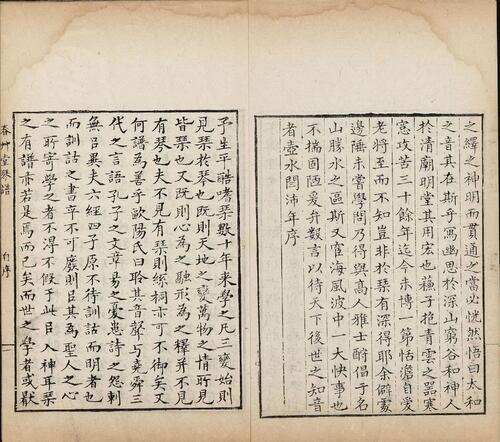 之繹之神明而貫通之當必恍悟曰太和
之音其在斯乎寫幽思於深山窮谷和神人
於清廟明堂其用宏也蘓子抱青雲之器寒
窓攻苦三十餘年迄今未博一第恬澹自愛
老將至而不知豈非於琴有深得耶余僻處
邊陲未嘗學問乃得與高人雅士酹倡于名
山勝水之區斯又宦海風波中一大快事也
不揣固陋爰弁數言以待天下後世之知音
者壺水閆沛年序
予生平酷嗜琴數十年来學之凡三變始則
見琴於琴也既則天地之變萬物之情所見
皆琴也又既則心為之融形為之釋并不見
有琴也夫不見有琴則絲桐亦可不御矣又
何譜為善乎歐陽氏曰聆其音聲与堯舜三
代之言語孔子之文章易之憂患詩之怨刺
無㠯異夫六經四子原不待訓詁而明者也
而訓詁之書卒不可廢則㠯其為聖人之心
之所寄學之者不得不假于此㠯入神耳琴
之有譜亦若是焉而已矣而世之學者或厭
春艸堂琴譜 自序 一